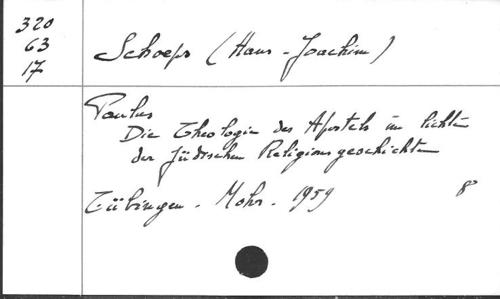 320
63
17
Schoeps (Hans-Joachim)
Paulus
Die Theologie des Apostels im lichte
der Jüdischen Religionsgeschichte
Tübingen. Mohr. 1959 8°